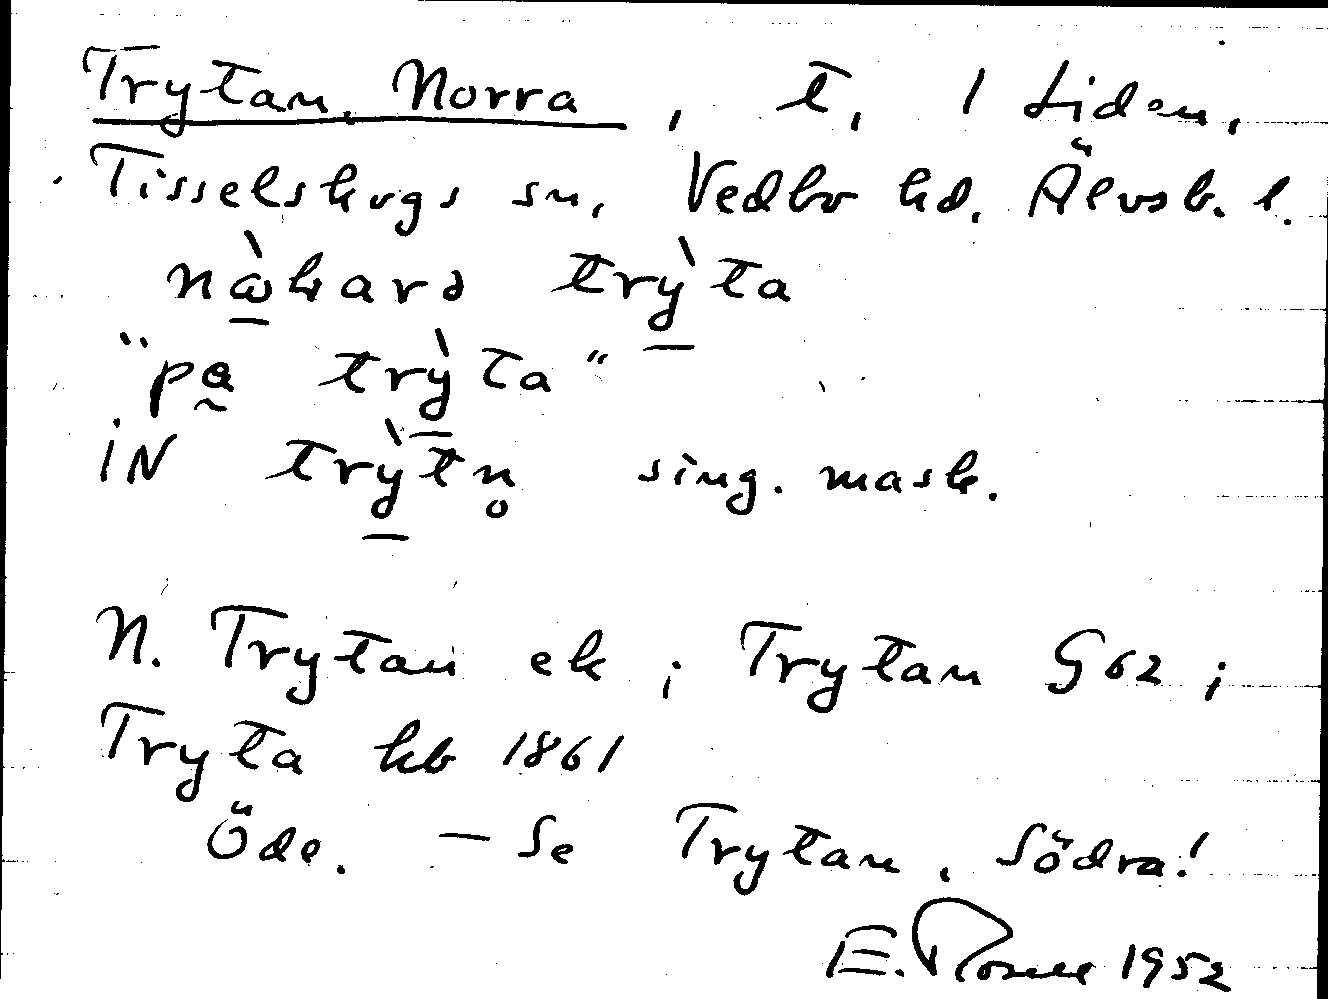 Trytan, Norra, t, 1 Liden,
Tisselskogs sn, Vedbo hd. Älvsb. l.
nờkarə trỳta
"pa̰ trỳta"
IN trỳtn̥ sing. mask.
N. Trytan ek; Trytan G62;
Tryta kb 1861
Öde. – Se Trytan, Södra!
E. 1952